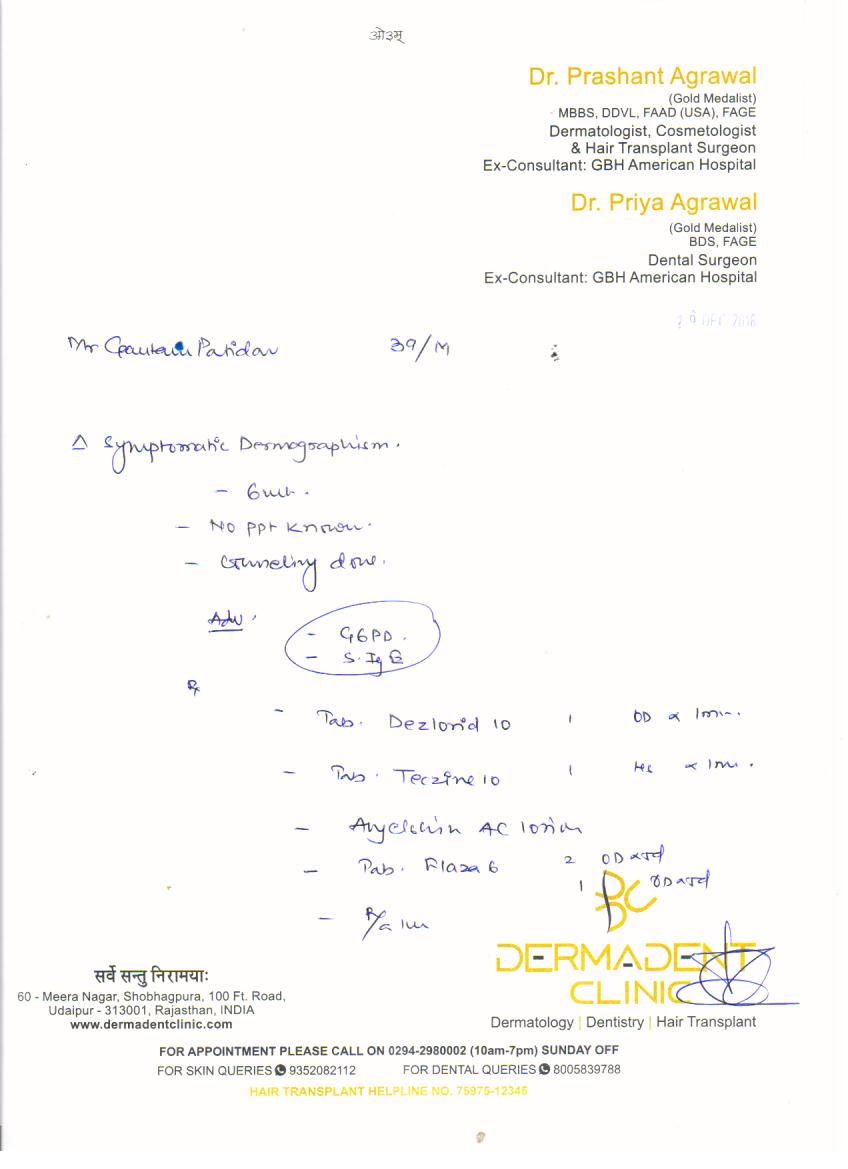 ओ३म्
Dr. Prashant Agrawal
(Gold Medalist)
MBBS, DDVL, FAAD (USA), FAGE
Dermatologist, Cosmetologist
& Hair Transplant Surgeon
Ex-Consultant: GBH American Hospital
Dr. Priya Agrawal
(Gold Medalist)
BDS, FAGE
Dental Surgeon
Ex-Consultant: GBH American Hospital
26 DEC 2016
Mr Gautam Patidar 39/M
Δ Symptomatic Dermographism.
- 6
- No ppt known.
- Counseling done.
Adv.
- G6PD.
- S. IgE
Rx
- Tab. Dezlorid 10 1 OD x 1m
- Tab. Teczine 10 1 HS x 1m.
- AC lotion
- Tab. Flaza 6 2 OD x
1 OD x
- R/a 1m
DC
DERMADENT
CLINIC
Dermatology | Dentistry | Hair Transplant
सर्वे सन्तु निरामयाः
60 - Meera Nagar, Shobhagpura, 100 Ft. Road,
Udaipur - 313001, Rajasthan, INDIA
www.dermadentclinic.com
FOR APPOINTMENT PLEASE CALL ON 0294-2980002 (10am-7pm) SUNDAY OFF
FOR SKIN QUERIES 9352082112 FOR DENTAL QUERIES 8005839788
HAIR TRANSPLANT HELPLINE NO. 75975-12345